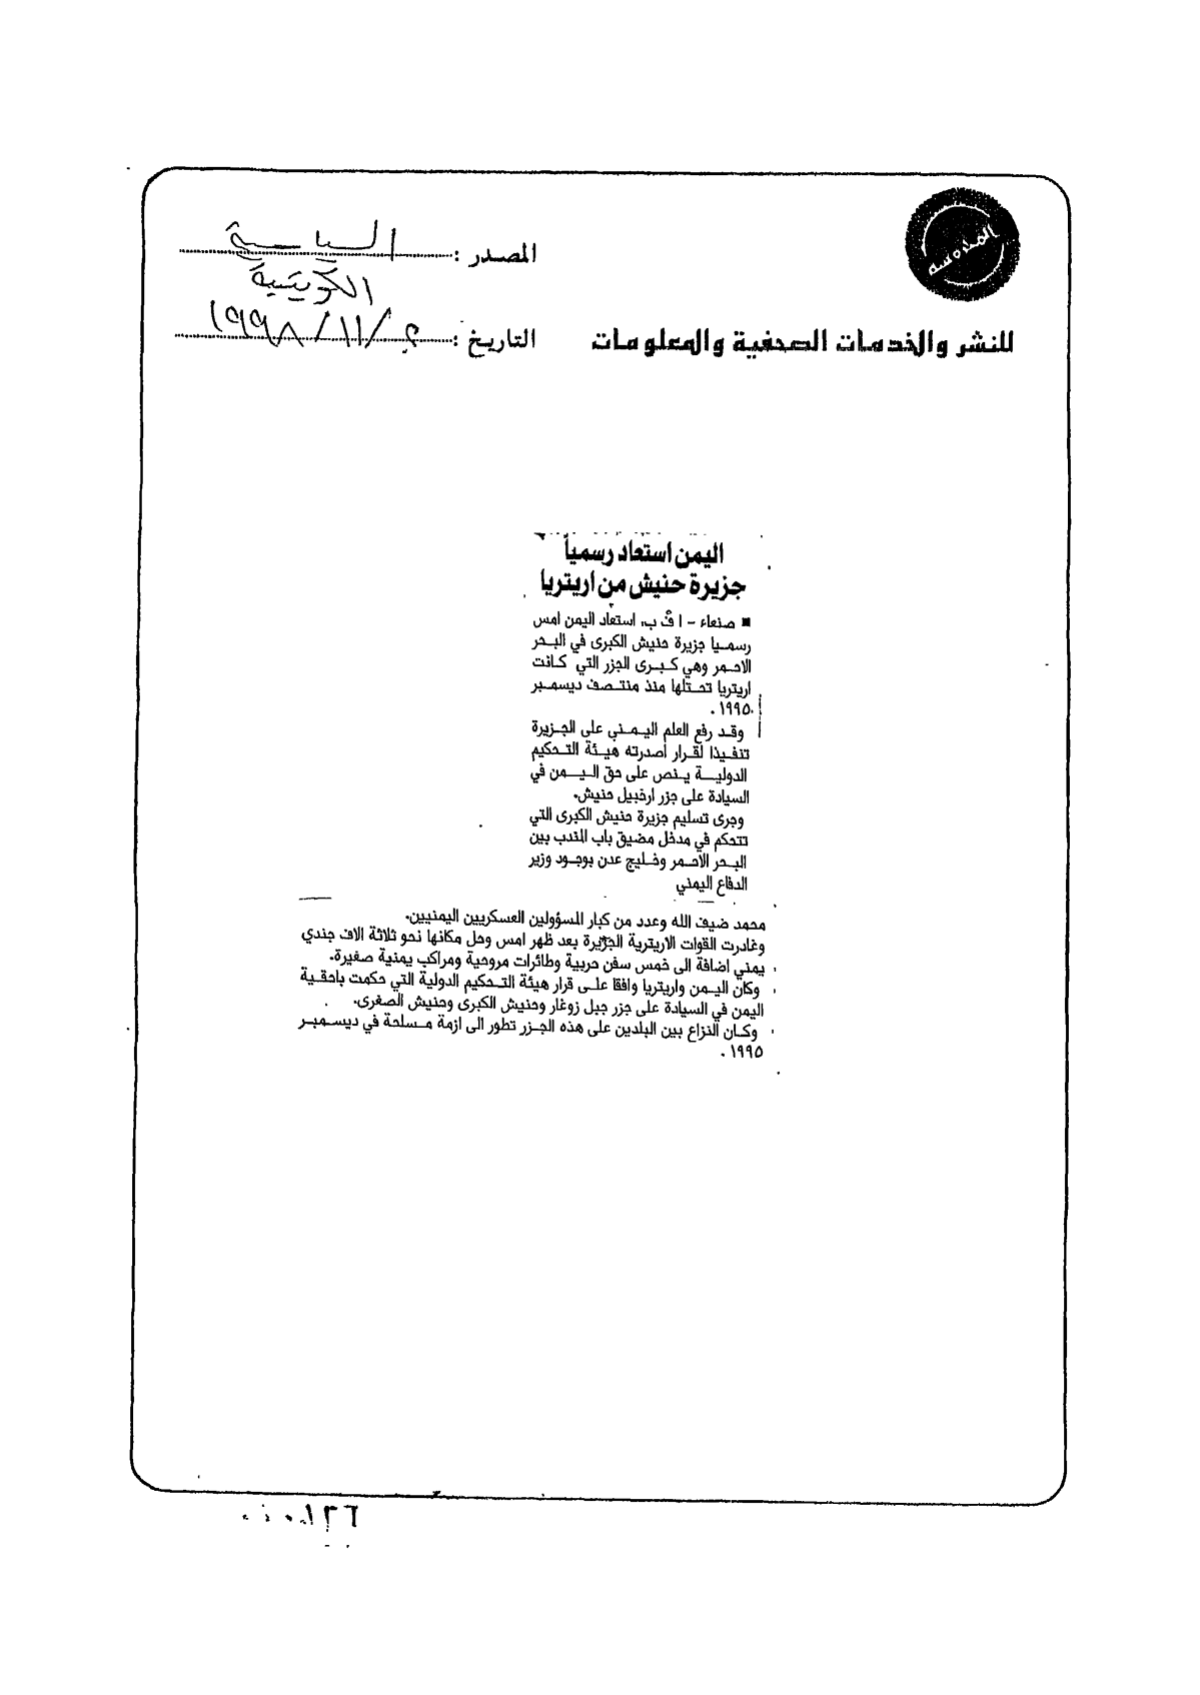 المصدر : السياسية
الكويتية
للنشر والخدمات الصحفية والمعلومات
التاريخ : ٢/١١/١٩٩٨
اليمن استعاد رسمياً
جزيرة حنيش من اريتريا
■ صنعاء - ا ف ب، استعاد اليمن امس
رسميا جزيرة حنيش الكبرى في البحر
الاحمر وهي كبرى الجزر التي كانت
اريتريا تحتلها منذ منتصف ديسمبر
١٩٩٥.
وقد رفع العلم اليمني على الجزيرة
تنفيذا لقرار اصدرته هيئة التحكيم
الدولية ينص على حق اليمن في
السيادة على جزر ارخبيل حنيش.
وجرى تسليم جزيرة حنيش الكبرى التي
تتحكم في مدخل مضيق باب المندب بين
البحر الاحمر وخليج عدن بوجود وزير
الدفاع اليمني
محمد ضيف الله وعدد من كبار المسؤولين العسكريين اليمنيين.
وغادرت القوات الاريترية الجزيرة بعد ظهر امس وحل مكانها نحو ثلاثة الاف جندي
يمني اضافة الى خمس سفن حربية وطائرات مروحية ومراكب يمنية صغيرة.
وكان اليمن واريتريا وافقا على قرار هيئة التحكيم الدولية التي حكمت باحقية
اليمن في السيادة على جزر جبل زوغار وحنيش الكبرى وحنيش الصغرى.
وكان النزاع بين البلدين على هذه الجزر تطور الى ازمة مسلحة في ديسمبر
١٩٩٥.